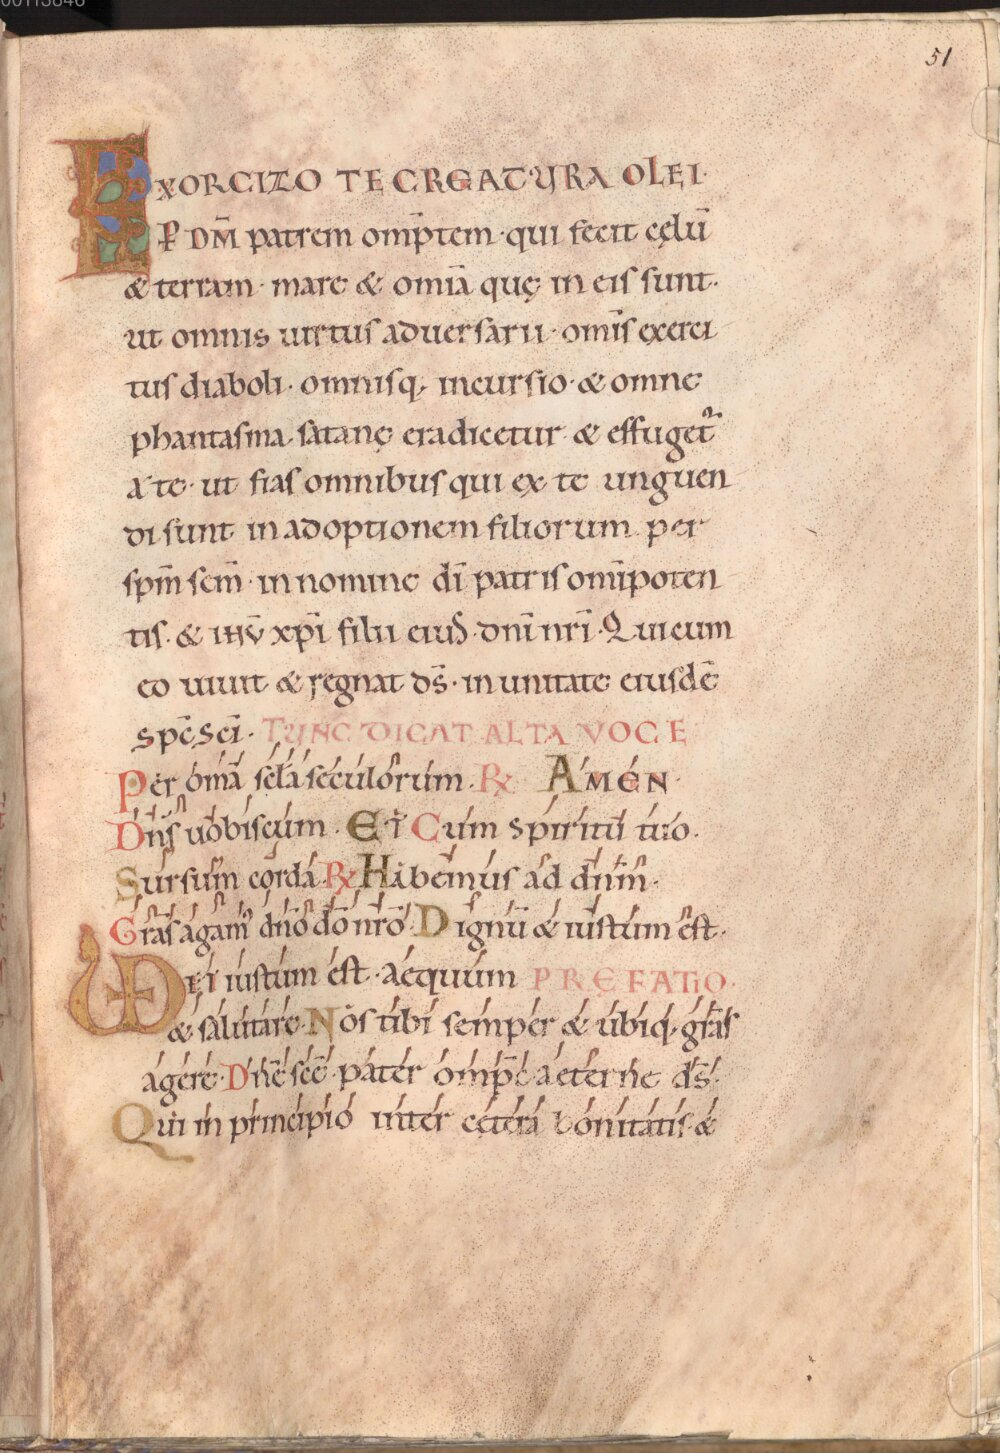 00113846
51
EXORCIZO TE CREATURA OLEI·
P̲ DM̄ patrem omp̄tem· qui fecit cęlū
& terram· mare & omīa quę in eis sunt·
ut omnis uirtus aduersarii· omīs exerci
tus diaboli· omnisq; incursio· & omne
phantasma· satanę eradicetur & effuget᷑
a te· ut fias omnibus qui ex te unguen
di sunt in adoptionem filiorum per
spm̄ scm̄· in nomine dī patris omīpoten
tis· & ihū xpī filii eiusd· dnī nrī· Qui cum
eo uiuit & regnat ds̄· in unitate eiusdē
spc̄ scī· TUNC DICAT ALTA VOCE
Per om̄a scl̄a seculorum· R̷ AMEN·
Dn̄s uobiscum· ET Cum spiritū tuo·
Sursum corda· R̷ Habemus ad dnm̄·
Grās agam̄ dn̄o dō nrō· Dignū & iustum est·
VEre iustum est· aequum PREFATIO·
& salutare· Nos tibi semper & ubiq; grās
agere· Dn̄ē scē· pater omp̄c aeterne ds̄·
Qui in principio inter cętera bonitatis &